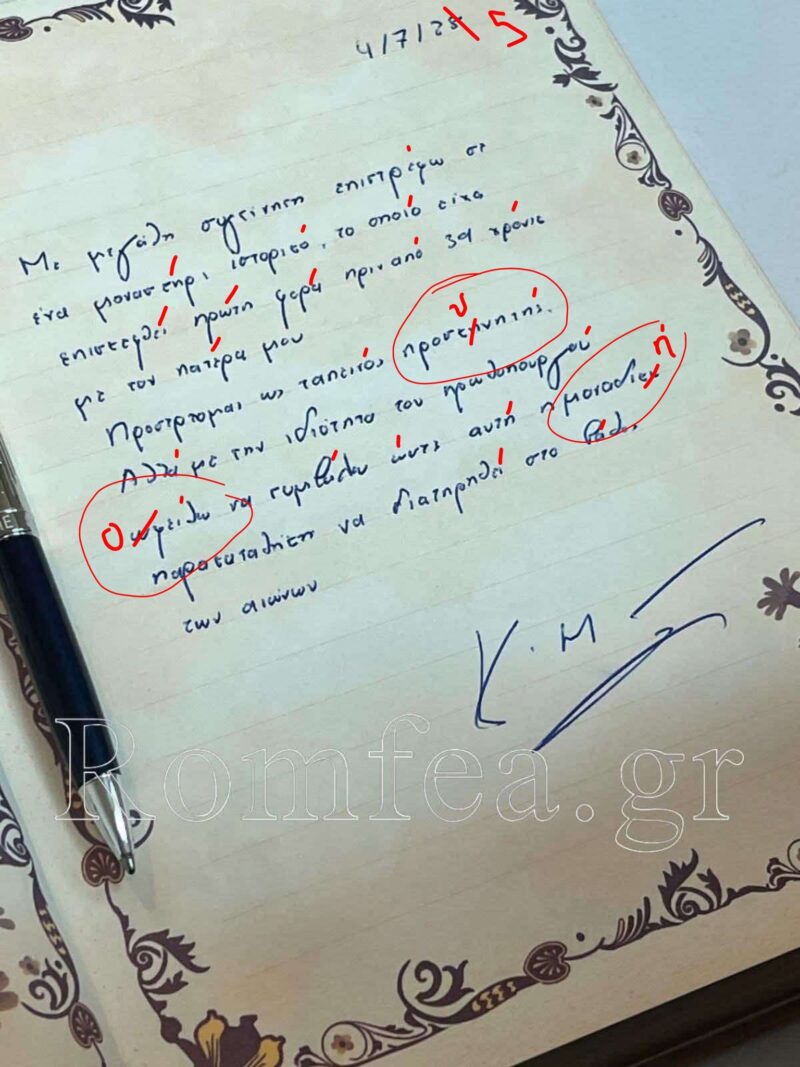 4/7/25 5
Με μεγάλη συγκίνηση επιστρέφω σε
ένα μοναστήρι ιστορικό, το οποίο είχα
επισκεφθεί πρώτη φορά πριν από 39 χρόνια
με τον πατέρα μου
υ
Προσέρχομαι ως ταπεινός προσκηνητής.
Αλλά με την ιδιότητα του πρωθυπουργού
ή
Ο ωφείλω να συμβάλω ώστε αυτή η μοναδικη
παρακαταθήκη να διατηρηθεί στο βάθος
των αιώνων
Κ. Μ
Romfea.gr